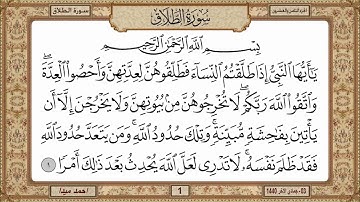 سورة الطلاق
سُورَةُ الطَّلَاقِ
الجزء الثامن والعشرون
بِسْمِ ٱللَّهِ ٱلرَّحْمَٰنِ ٱلرَّحِيمِ
يَٰٓأَيُّهَا ٱلنَّبِىُّ إِذَا طَلَّقْتُمُ ٱلنِّسَآءَ فَطَلِّقُوهُنَّ لِعِدَّتِهِنَّ وَأَحْصُوا۟ ٱلْعِدَّةَ ۖ
وَٱتَّقُوا۟ ٱللَّهَ رَبَّكُمْ ۖ لَا تُخْرِجُوهُنَّ مِنۢ بُيُوتِهِنَّ وَلَا يَخْرُجْنَ إِلَّآ أَن
يَأْتِينَ بِفَٰحِشَةٍ مُّبَيِّنَةٍ ۚ وَتِلْكَ حُدُودُ ٱللَّهِ ۚ وَمَن يَتَعَدَّ حُدُودَ ٱللَّهِ
فَقَدْ ظَلَمَ نَفْسَهُۥ ۚ لَا تَدْرِى لَعَلَّ ٱللَّهَ يُحْدِثُ بَعْدَ ذَٰلِكَ أَمْرًا ١
1440
1
احمد